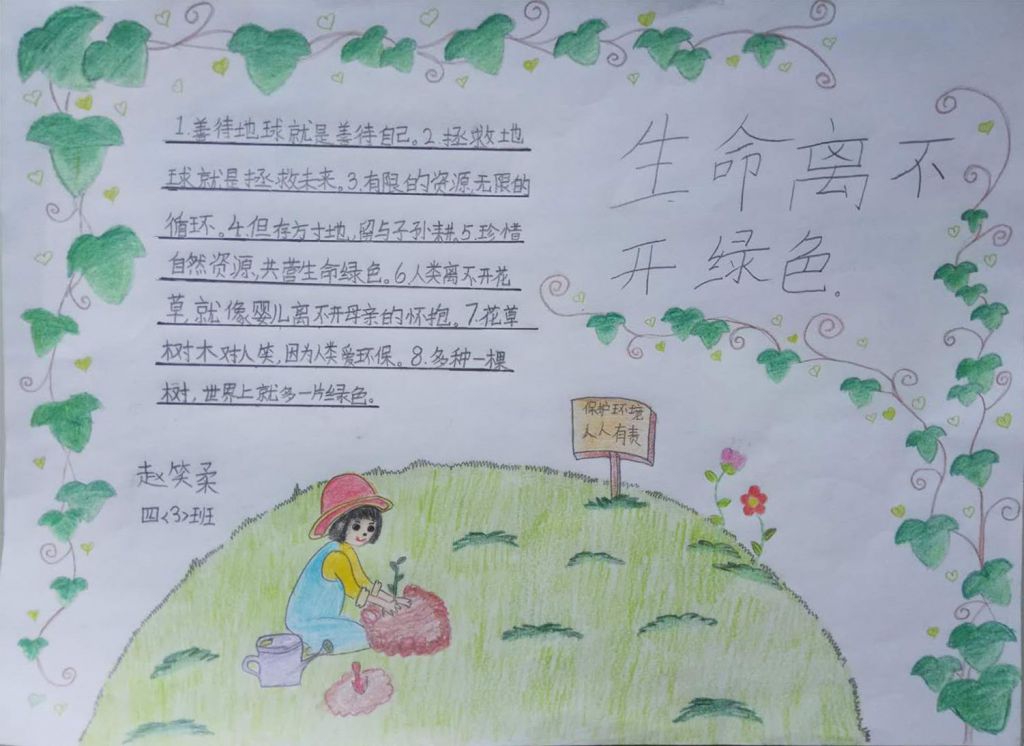 1.善待地球就是善待自己。2.拯救地
球就是拯救未来。3.有限的资源,无限的
循环。4.但存方寸地,留与子孙耕.5.珍惜
自然资源,共营生命绿色。6.人类离不开花
草,就像婴儿离不开母亲的怀抱。7.花草
树木对人笑,因为人类爱环保。8.多种一棵
树,世界上就多一片绿色。
生命离不
开绿色.
保护环境
人人有责
赵笑柔
四<3>班